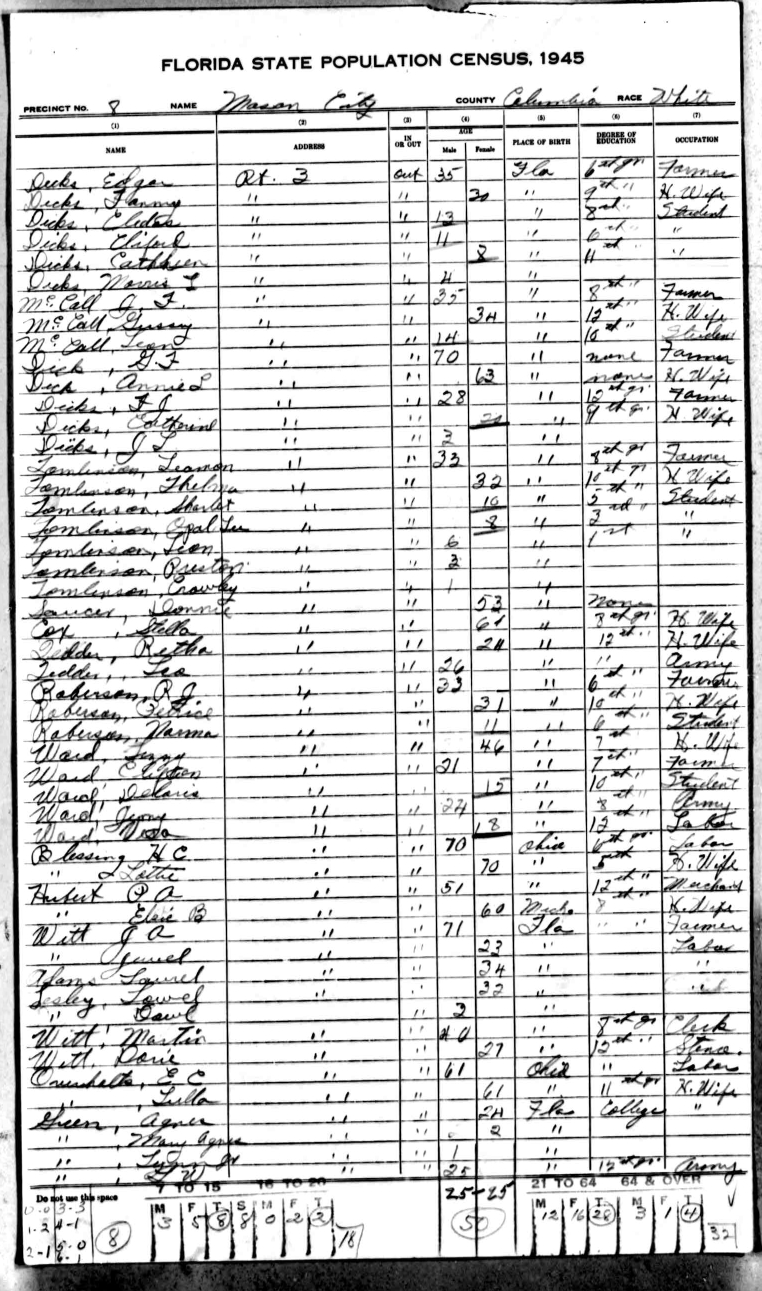 FLORIDA STATE POPULATION CENSUS, 1945
PRECINCT NO. 8 NAME Mason City COUNTY Columbia RACE White
(1) (2) (3) (4) (5) (6) (7)
NAME ADDRESS IN OR OUT AGE Male Female PLACE OF BIRTH DEGREE OF EDUCATION OCCUPATION
Dicks, Edgar Rt. 3 out 35 Fla 6th gr. Farmer
Dicks, " " 30 " 9th " H. Wife
Dicks, " " 13 " 8th " Student
Dicks, Cliford " " 11 " 6th " "
Dicks, Cathleen " " 8 " 11th " "
Dicks, Morris L " " 4 "
McCall J. F. " " 35 " 8th " Farmer
McCall Gussy " " 34 " 12th " H. Wife
McCall, Leon " " 14 " 10th " Student
Dick, G F " " 70 " none Farmer
Dick, Annie L " " 63 " none H. Wife
Dicks, F J " " 28 " 12th gr. Farmer
Dicks, Catherine " " " 9th gr. H Wife
Dicks, J L " " 2 "
Tomlinson, Leamon " " 33 " 8th gr Farmer
Tomlinson, Thelma " " 32 " 10th gr H Wife
Tomlinson, " " 10 " 5th " Student
Tomlinson, Opal Lee " " 8 " 3rd " "
Tomlinson, Leon " " 6 " 1st "
Tomlinson, Preston " " 3 "
Tomlinson, Crawley " " 1 "
Saucer, Donnie " " 53 " None
Cox, Stella " " 61 " 8th gr. H. Wife
Tedder, Retha " " 24 " 12th " H. Wife
Tedder, Leo " " 26 " " Army
Roberson, R J " " 33 " 6th " Farmer
Roberson, " " 31 " 10th " H. Wife
Roberson, Varma " " 11 " 6th " Student
Ward, " " 46 " 7th " H. Wife
Ward Clifton " " 21 " 7th " Farmer
Ward, Deloris " " 15 " 10th " Student
Ward, Jimy " " 24 " 8th " Army
Ward, " " 18 " 12 " Labor
Blessing H C " " 70 Ohio 6th gr. Labor
" Lottie " " 70 " 5th H. Wife
Hubert P A " " 51 " 12th " Merchant
" Elsie B " " 60 Mich. 8th " H. Wife
Witt J A " " 71 Fla " " Farmer
" " " 23 " Labor
Laurel " " 34 " "
Lesley, Lowel " " 32 " "
" " " 3 "
Witt, Martin " " 40 " 8th gr Clerk
Witt, Dorie " " 27 " 12th " Steno.
Overholts, E C " " 61 Ohio " Labor
", Lulla " " 61 " 11th gr H. Wife
Green, Agnes " " 24 Fla College "
", Mary Agnes " " 2 "
", Jr " " 1 "
", " " 25 " 12th gr. Army
Do not use this space 7 TO 15 16 TO 20 25-25 21 TO 64 64 & OVER
0-0 3-3 M F T S M F T M F T M F T
1-2 4-1 8 3 5 8 8 0 2 2 18 50 12 16 28 3 1 4 32
2-1